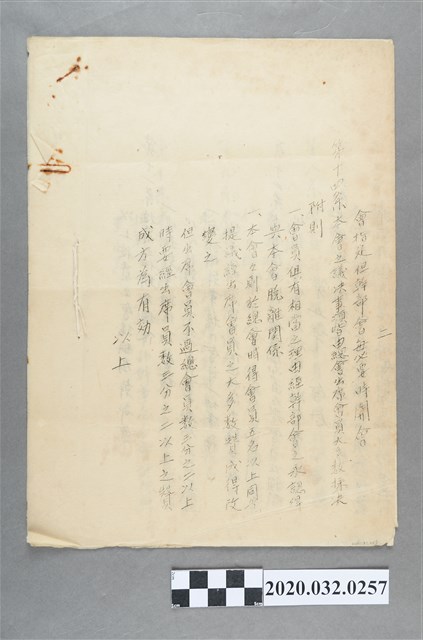 二
會情是組幹部會每必要時開會
第十四條大會之議決事項皆由總會出席會員大多数採決
附則
一、會員俱有相當之理由經幹部會之承認得
與本會脫離關係
一、本會々則於總會時得會員五名以上同意
提議經出席會員之大多数賛成得改
變之
但出席會員不過總會員数三分之二以上
時要經出席員数三分之二以上之賛
成方為有効
以上
2020.032.0257